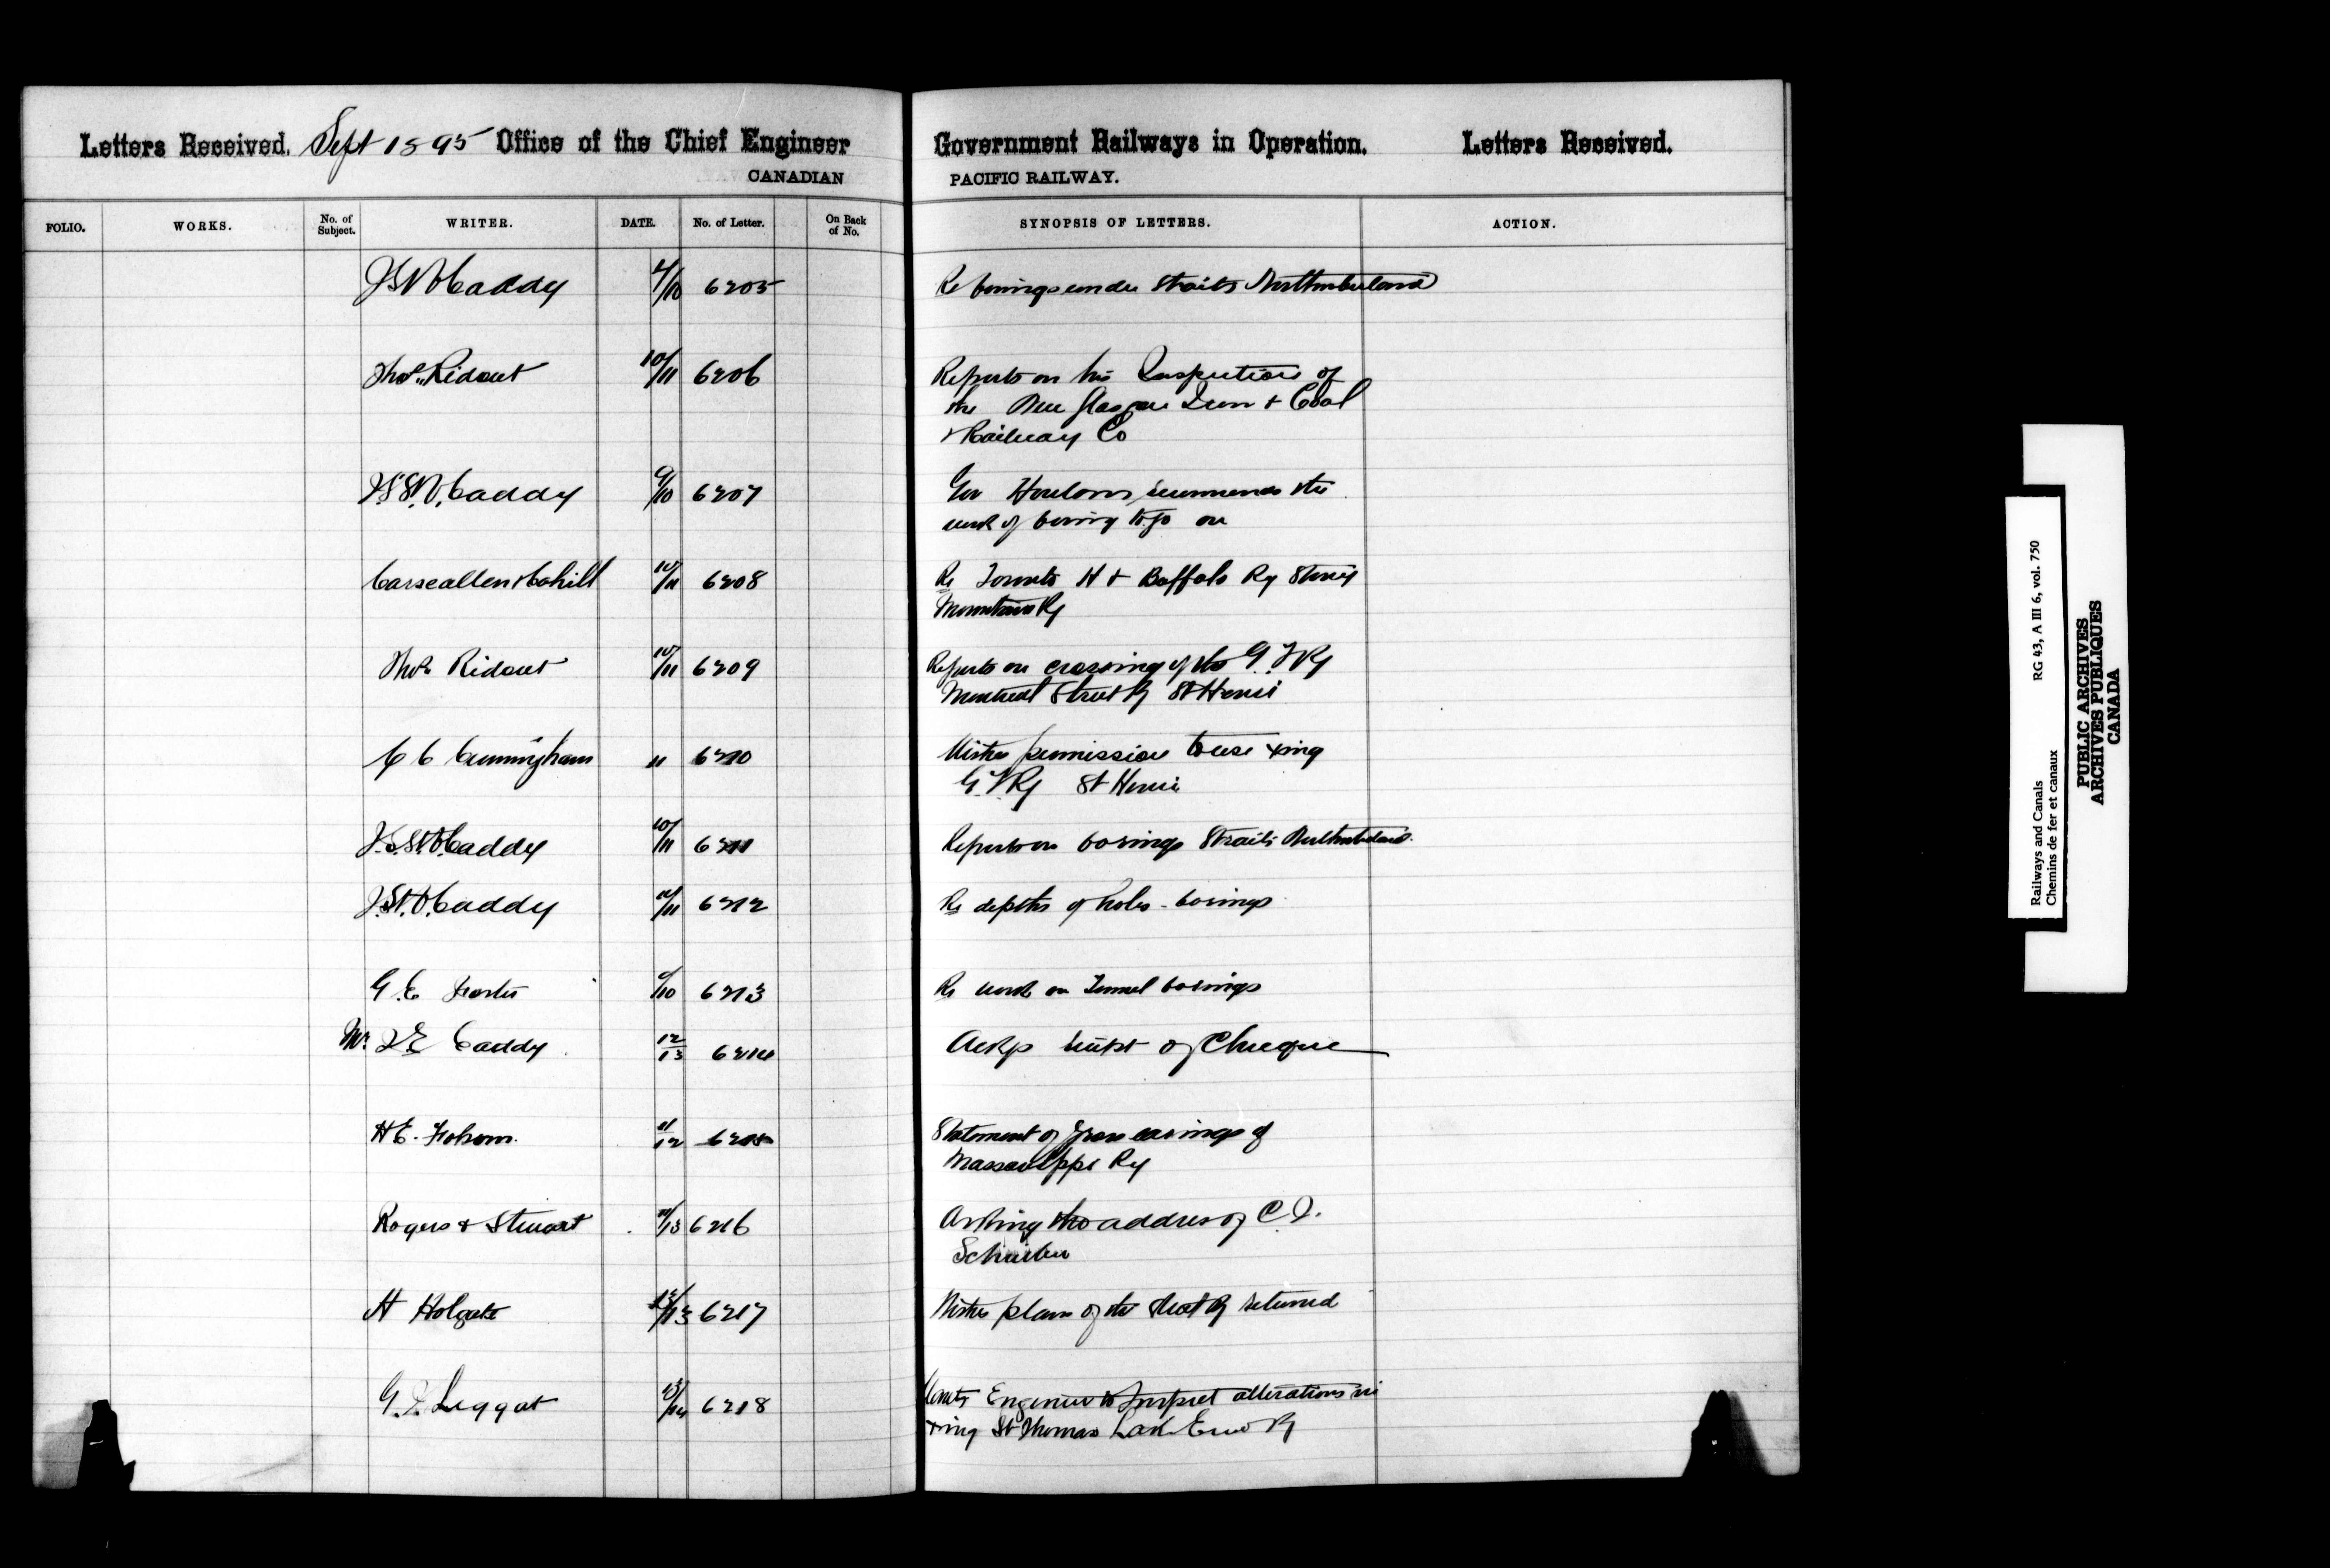 Letters Received. Sept 1895 Office of the Chief Engineer Government Railways in Operation. Letters Received.
CANADIAN PACIFIC RAILWAY.
FOLIO. WORKS. No. of Subject. WRITER. DATE. No. of Letter. On Back of No. SYNOPSIS OF LETTERS. ACTION.
J St V Caddy 4/10 6205 Re borings under Straits Northumberland
Thos Ridout 10/11 6206 Reports on his Inspection of
the New Glasgow Iron & Coal
& Railway Co
J. St. V. Caddy 9/10 6207 Gov Howlan recommends the
work of boring to go on
Carscallen & Cahill 10/11 6208 Re Toronto H & Buffalo Ry Stoney
Mountain Ry
Thos Ridout 10/11 6209 Reports on crossing of the G.T Ry
Montreal Street Ry St Henri
C C Cunningham " 6210 Wishes permission to use xing
G.T Ry St Henri
J. St. V. Caddy 10/11 6211 Reports on borings Straits Northumberland.
J. St. V. Caddy 6212 Re depths of holes - borings
G. E Foster 6213 Re work on Tunnel borings
Mr. Caddy 12/13 6214 Ackg receipt of Cheque
H E. Folsom. 11/12 6215 Statement of Gross earnings of
Massawippi Ry
Rogers & Stewart 6216 Asking the address of C.
Schreiber
H Holgate 6217 Wishes plan of the Street Ry returned
G. Leggat 13/14 6218 Wants Engineer to Inspect alterations in
xing St Thomas Lake Erie Ry
Railways and Canals RG 43, A III 6, vol. 750
Chemins de fer et canaux
PUBLIC ARCHIVES
ARCHIVES PUBLIQUES
CANADA